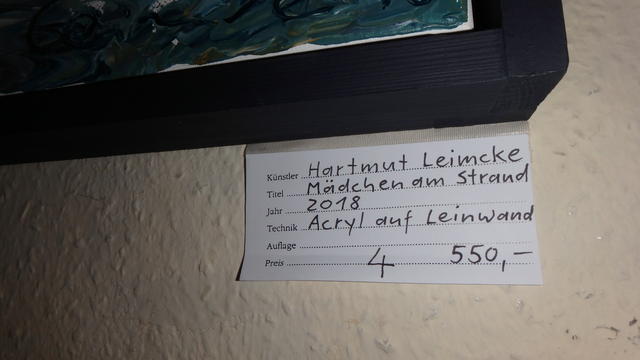 Künstler Hartmut Leimcke
Titel Mädchen am Strand
Jahr 2018
Technik Acryl auf Leinwand
Auflage
Preis 4 550,-